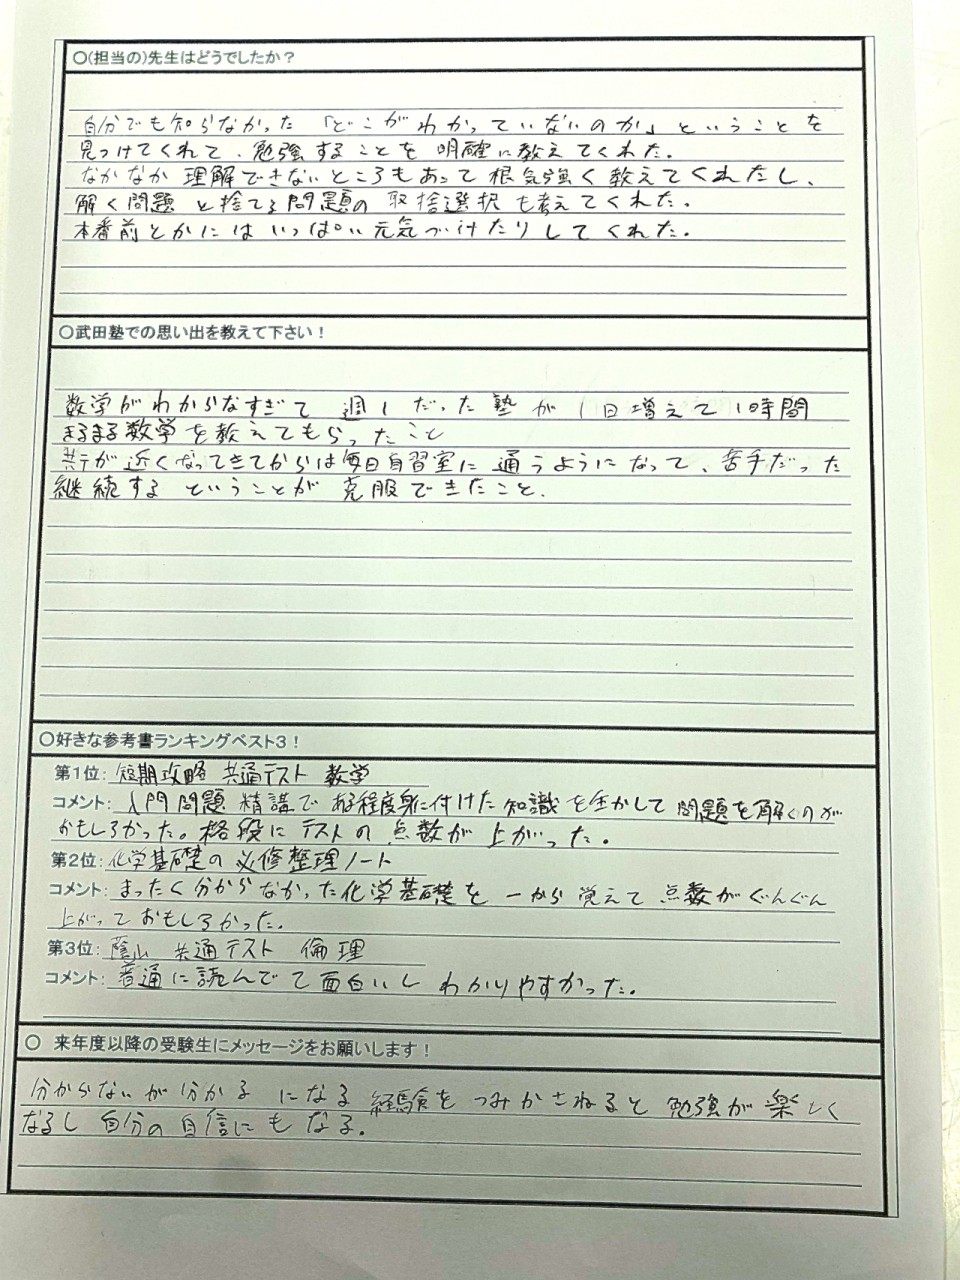 ○(担当の)先生はどうでしたか?
自分でも知らなかった「どこがわかっていないのか」ということを
見つけてくれて、勉強することを明確に教えてくれた。
なかなか理解できないところもあって根気強く教えてくれたし、
解く問題と捨てる問題の取捨選択も考えてくれた。
本番前とかにはいっぱい元気づけたりしてくれた。
○武田塾での思い出を教えて下さい!
数学がわからなすぎて週1だった塾が1日増えて1時間
まるまる数学を教えてもらったこと
共テが近くなってきてからは毎日自習室に通うようになって、苦手だった
継続するということが克服できたこと.
○好きな参考書ランキングベスト3!
第1位: 短期攻略 共通テスト 数学
コメント: 入門問題精講である程度身に付けた知識を生かして問題を解くのが
おもしろかった。格段にテストの点数が上がった。
第2位: 化学基礎の必修整理ノート
コメント: まったく分からなかった化学基礎を一から覚えて点数がぐんぐん
上がっておもしろかった.
第3位: 蔭山 共通テスト 倫理
コメント: 普通に読んでて面白いしわかりやすかった.
○ 来年度以降の受験生にメッセージをお願いします!
分からないが分かるになる経験をつみかさねると勉強が楽しく
なるし自分の自信にもなる.